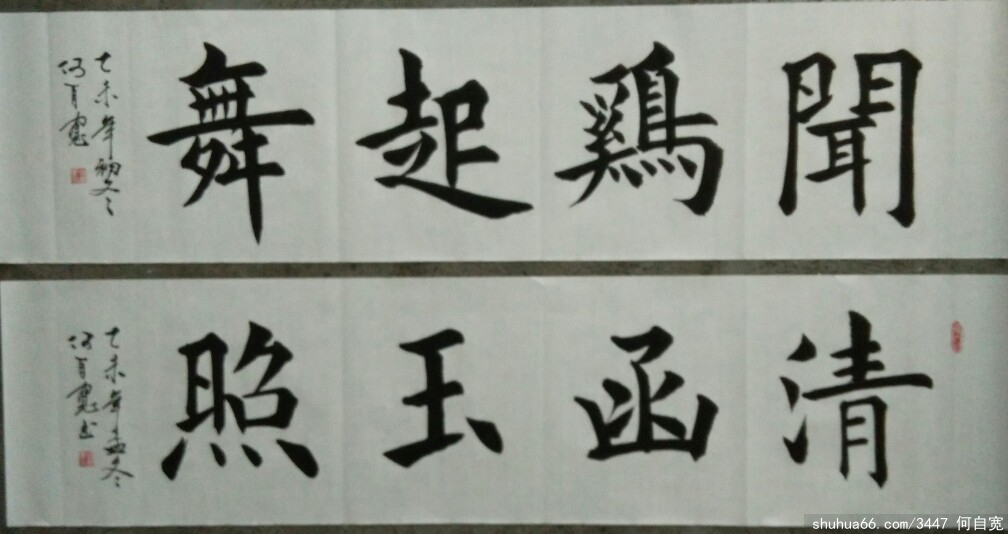 聞鷄起舞
乙未年初冬
何自寬
清函玉照
乙未年孟冬
何自寬书
shuhua66.com/3447 何自宽